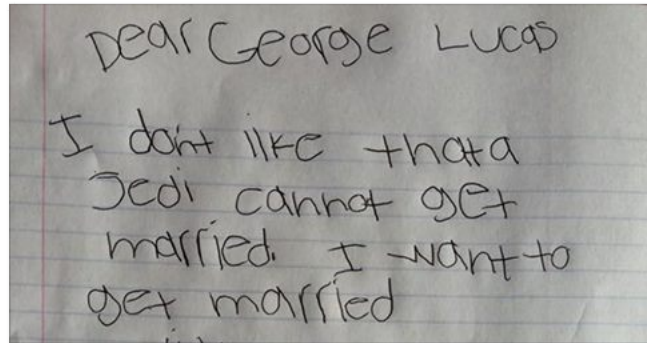 Dear George Lucas
I don't like that a
Jedi cannot get
married. I want to
get married